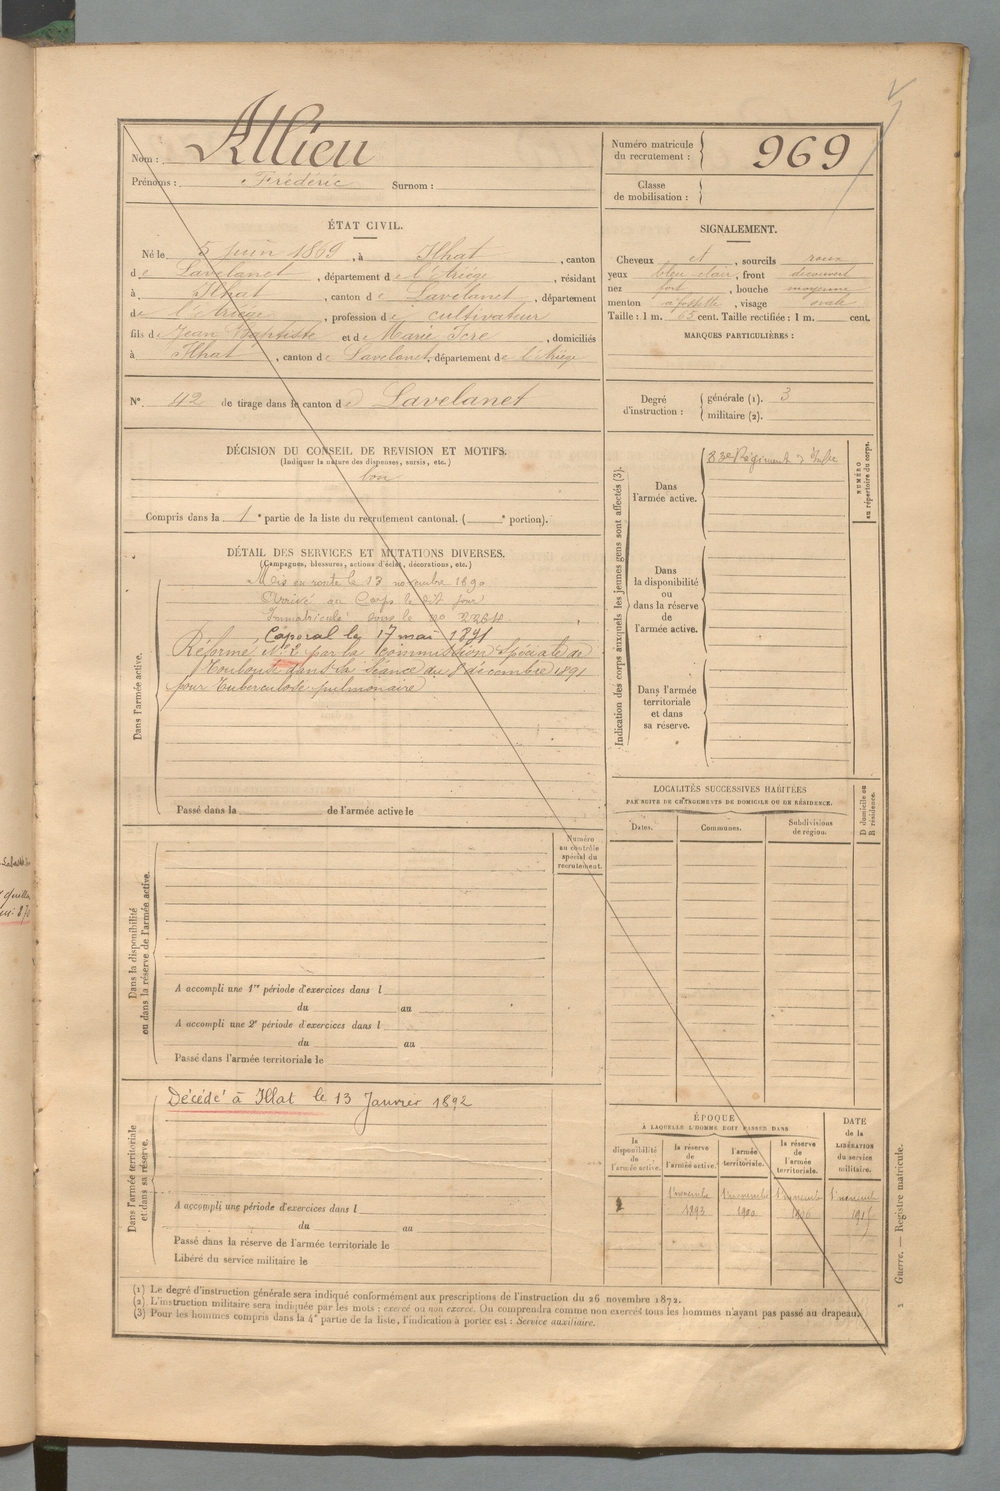 Nom : Allieu
Prénoms : Frédéric Surnom :
Numéro matricule du recrutement : 969
Classe de mobilisation :
ÉTAT CIVIL.
Né le 5 juin 1869, à Ilhat, canton
de Lavelanet, département de l'Ariège, résidant
à Ilhat, canton de Lavelanet, département
de l'Ariège, profession de cultivateur
fils de Jean Baptiste et de Marie Icre, domiciliés
à Ilhat, canton de Lavelanet, département de l'Ariège
SIGNALEMENT.
Cheveux et, sourcils roux
yeux bleu-clair, front découvert
nez fort, bouche moyenne
menton à fossette, visage ovale
Taille : 1 m. 65 cent. Taille rectifiée : 1 m. cent.
MARQUES PARTICULIÈRES :
N° 42 de tirage dans le canton de Lavelanet
Degré d'instruction : générale (1). 3
militaire (2).
DÉCISION DU CONSEIL DE REVISION ET MOTIFS.
(Indiquer la nature des dispenses, sursis, etc.)
bon
Compris dans la 1e partie de la liste du recrutement cantonal. ( e portion).
DÉTAIL DES SERVICES ET MUTATIONS DIVERSES.
(Campagnes, blessures, actions d'éclat, décorations, etc.)
Dans l'armée active.
Mis en route le 13 novembre 1890
Arrivé au Corps le dit jour
Immatriculé sous le no
Caporal le 17 mai 1891
Réformé N° 2 par la Commission Spéciale de
Toulouse dans sa séance du 8 décembre 1891
pour Tuberculose pulmonaire
Passé dans la de l'armée active le
Indication des corps auxquels les jeunes gens sont affectés (3).
NUMÉRO au répertoire du corps.
Dans l'armée active.
83e Régiment d'Inf
Dans la disponibilité ou dans la réserve de l'armée active.
Dans l'armée territoriale et dans sa réserve.
LOCALITÉS SUCCESSIVES HABITÉES
PAR SUITE DE CHANGEMENTS DE DOMICILE OU DE RÉSIDENCE.
Dates. Communes. Subdivisions de région. D domicile ou R résidence.
Dans la disponibilité ou dans la réserve de l'armée active.
Numéro au contrôle spécial du recrutement.
A accompli une 1re période d'exercices dans l
du au
A accompli une 2e période d'exercices dans l
du au
Passé dans l'armée territoriale le
Dans l'armée territoriale et dans sa réserve.
Décédé à Illat le 13 Janvier 1892
A accompli une période d'exercices dans l
du au
Passé dans la réserve de l'armée territoriale le
Libéré du service militaire le
ÉPOQUE
À LAQUELLE L'HOMME DOIT PASSER DANS
la disponibilité de l'armée active. la réserve de l'armée active. l'armée territoriale. la réserve de l'armée territoriale.
DATE de la LIBÉRATION du service militaire.
1er novembre 1er novembre 1er novembre 1er novembre
1893 1900 1906 1915
(1) Le degré d'instruction générale sera indiqué conformément aux prescriptions de l'instruction du 26 novembre 1872.
(2) L'instruction militaire sera indiquée par les mots : exercé ou non exercé. On comprendra comme non exercés tous les hommes n'ayant pas passé au drapeau.
(3) Pour les hommes compris dans la 4e partie de la liste, l'indication à porter est : Service auxiliaire.
Guerre. — Registre matricule.